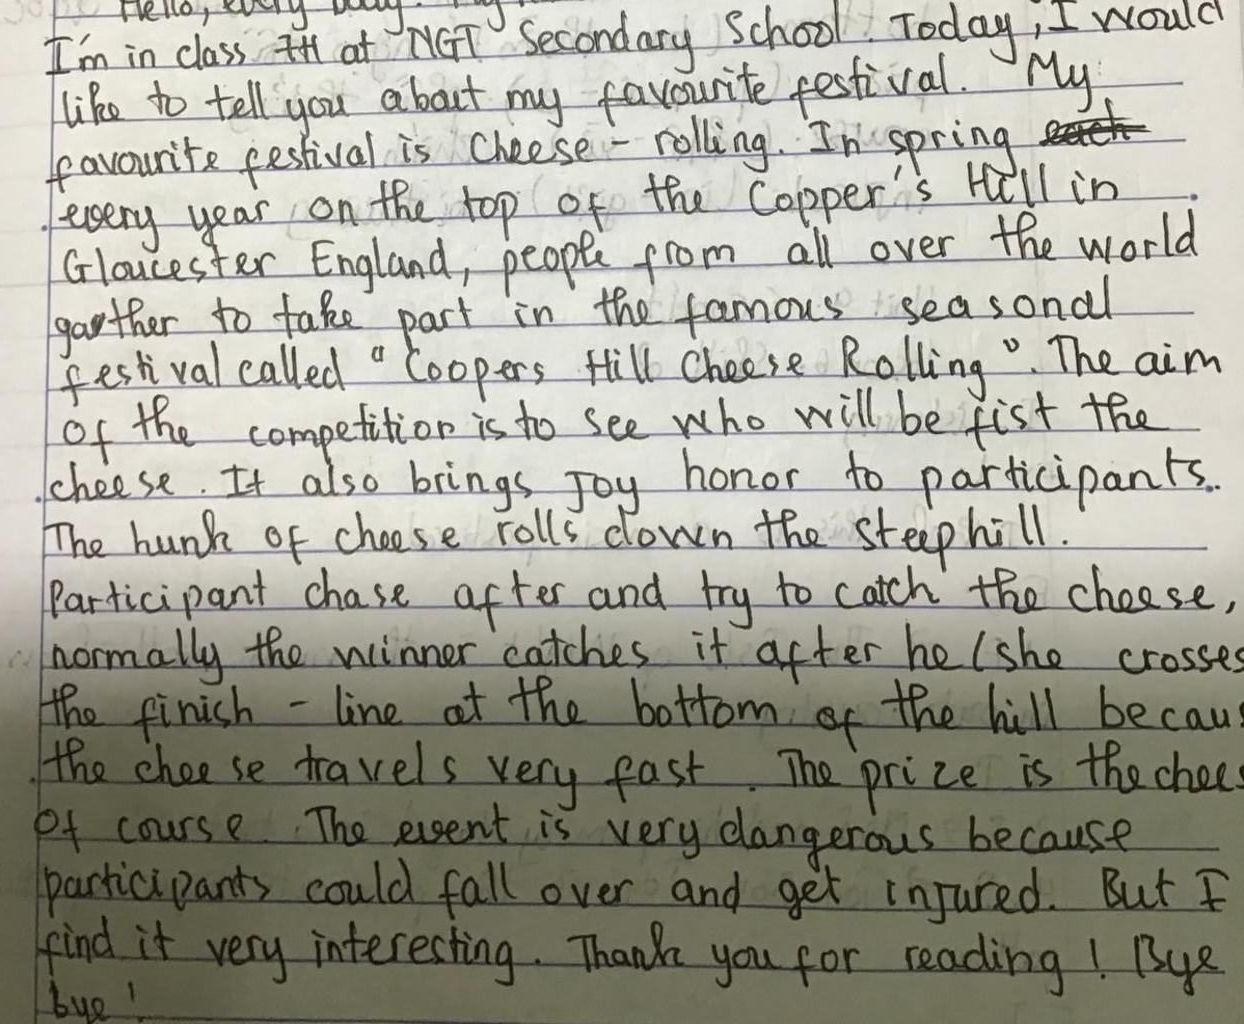 Hello, every body. My
I'm in class 7H at NGT Secondary School. Today, I would
like to tell you about my favourite festival. My
favourite festival is Cheese - rolling. In spring each
every year on the top of the Copper's Hill in
Gloucester England, people from all over the world
gather to take part in the famous seasonal
festival called "Coopers Hill Cheese Rolling". The aim
of the competition is to see who will be fist the
cheese. It also brings Joy honor to participants.
The hunk of cheese rolls down the steep hill.
Participant chase after and try to catch the cheese,
normally the winner catches it after he (she crosses
the finish - line at the bottom of the hill becaus
the cheese travels very fast. The prize is the chees
of course. The event is very dangerous because
participants could fall over and get injured. But I
find it very interesting. Thank you for reading! Bye
bye!